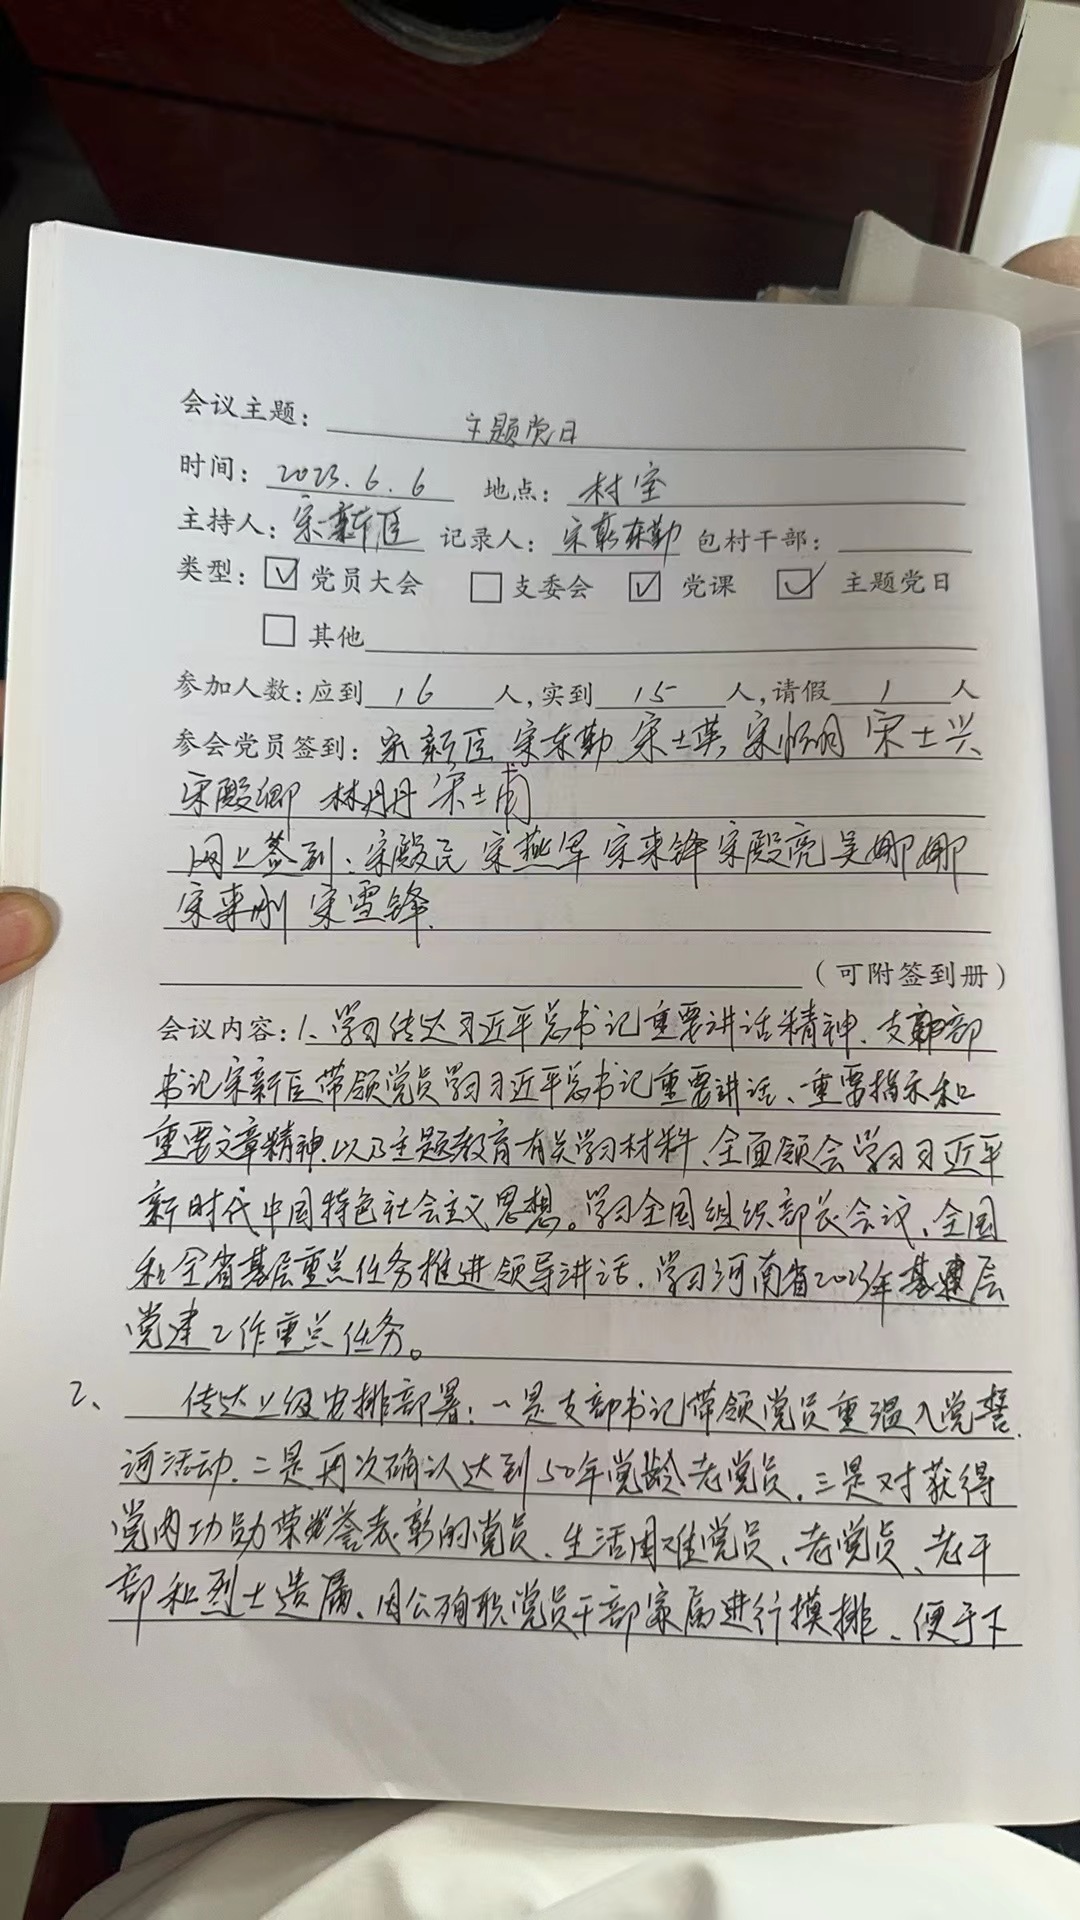 会议主题： 主题党日
时间：2023.6.6 地点：村室
主持人：宋新臣 记录人：宋东勤 包村干部：
类型：☑党员大会 □支委会 ☑党课 ☑主题党日
□其他
参加人数：应到16人，实到15人，请假1人
参会党员签到：宋新臣 宋东勤 宋士英 宋怀明 宋士兴
宋殿卿 林丹丹 宋士甫
网上签到：宋殿民 宋燕军 宋来锋 宋殿亮 吴娜娜
宋来刚 宋雪锋.
（可附签到册）
会议内容：1、学习传达习近平总书记重要讲话精神、支部
书记宋新臣带领党员学习习近平总书记重要讲话、重要指示和
重要文章精神、以及主题教育有关学习材料、全面领会学习习近平
新时代中国特色社会主义思想。学习全国组织部长会议、全国
和全省基层重点任务推进领导讲话、学习河南省2023年基层
党建工作重点任务。
2、 传达上级安排部署：一是支部书记带领党员重温入党誓
词活动、二是再次确认达到50年党龄老党员、三是对获得
党内功勋荣誉表彰的党员、生活困难党员、老党员、老干
部和烈士遗属、因公殉职党员干部家属进行摸排、便于下